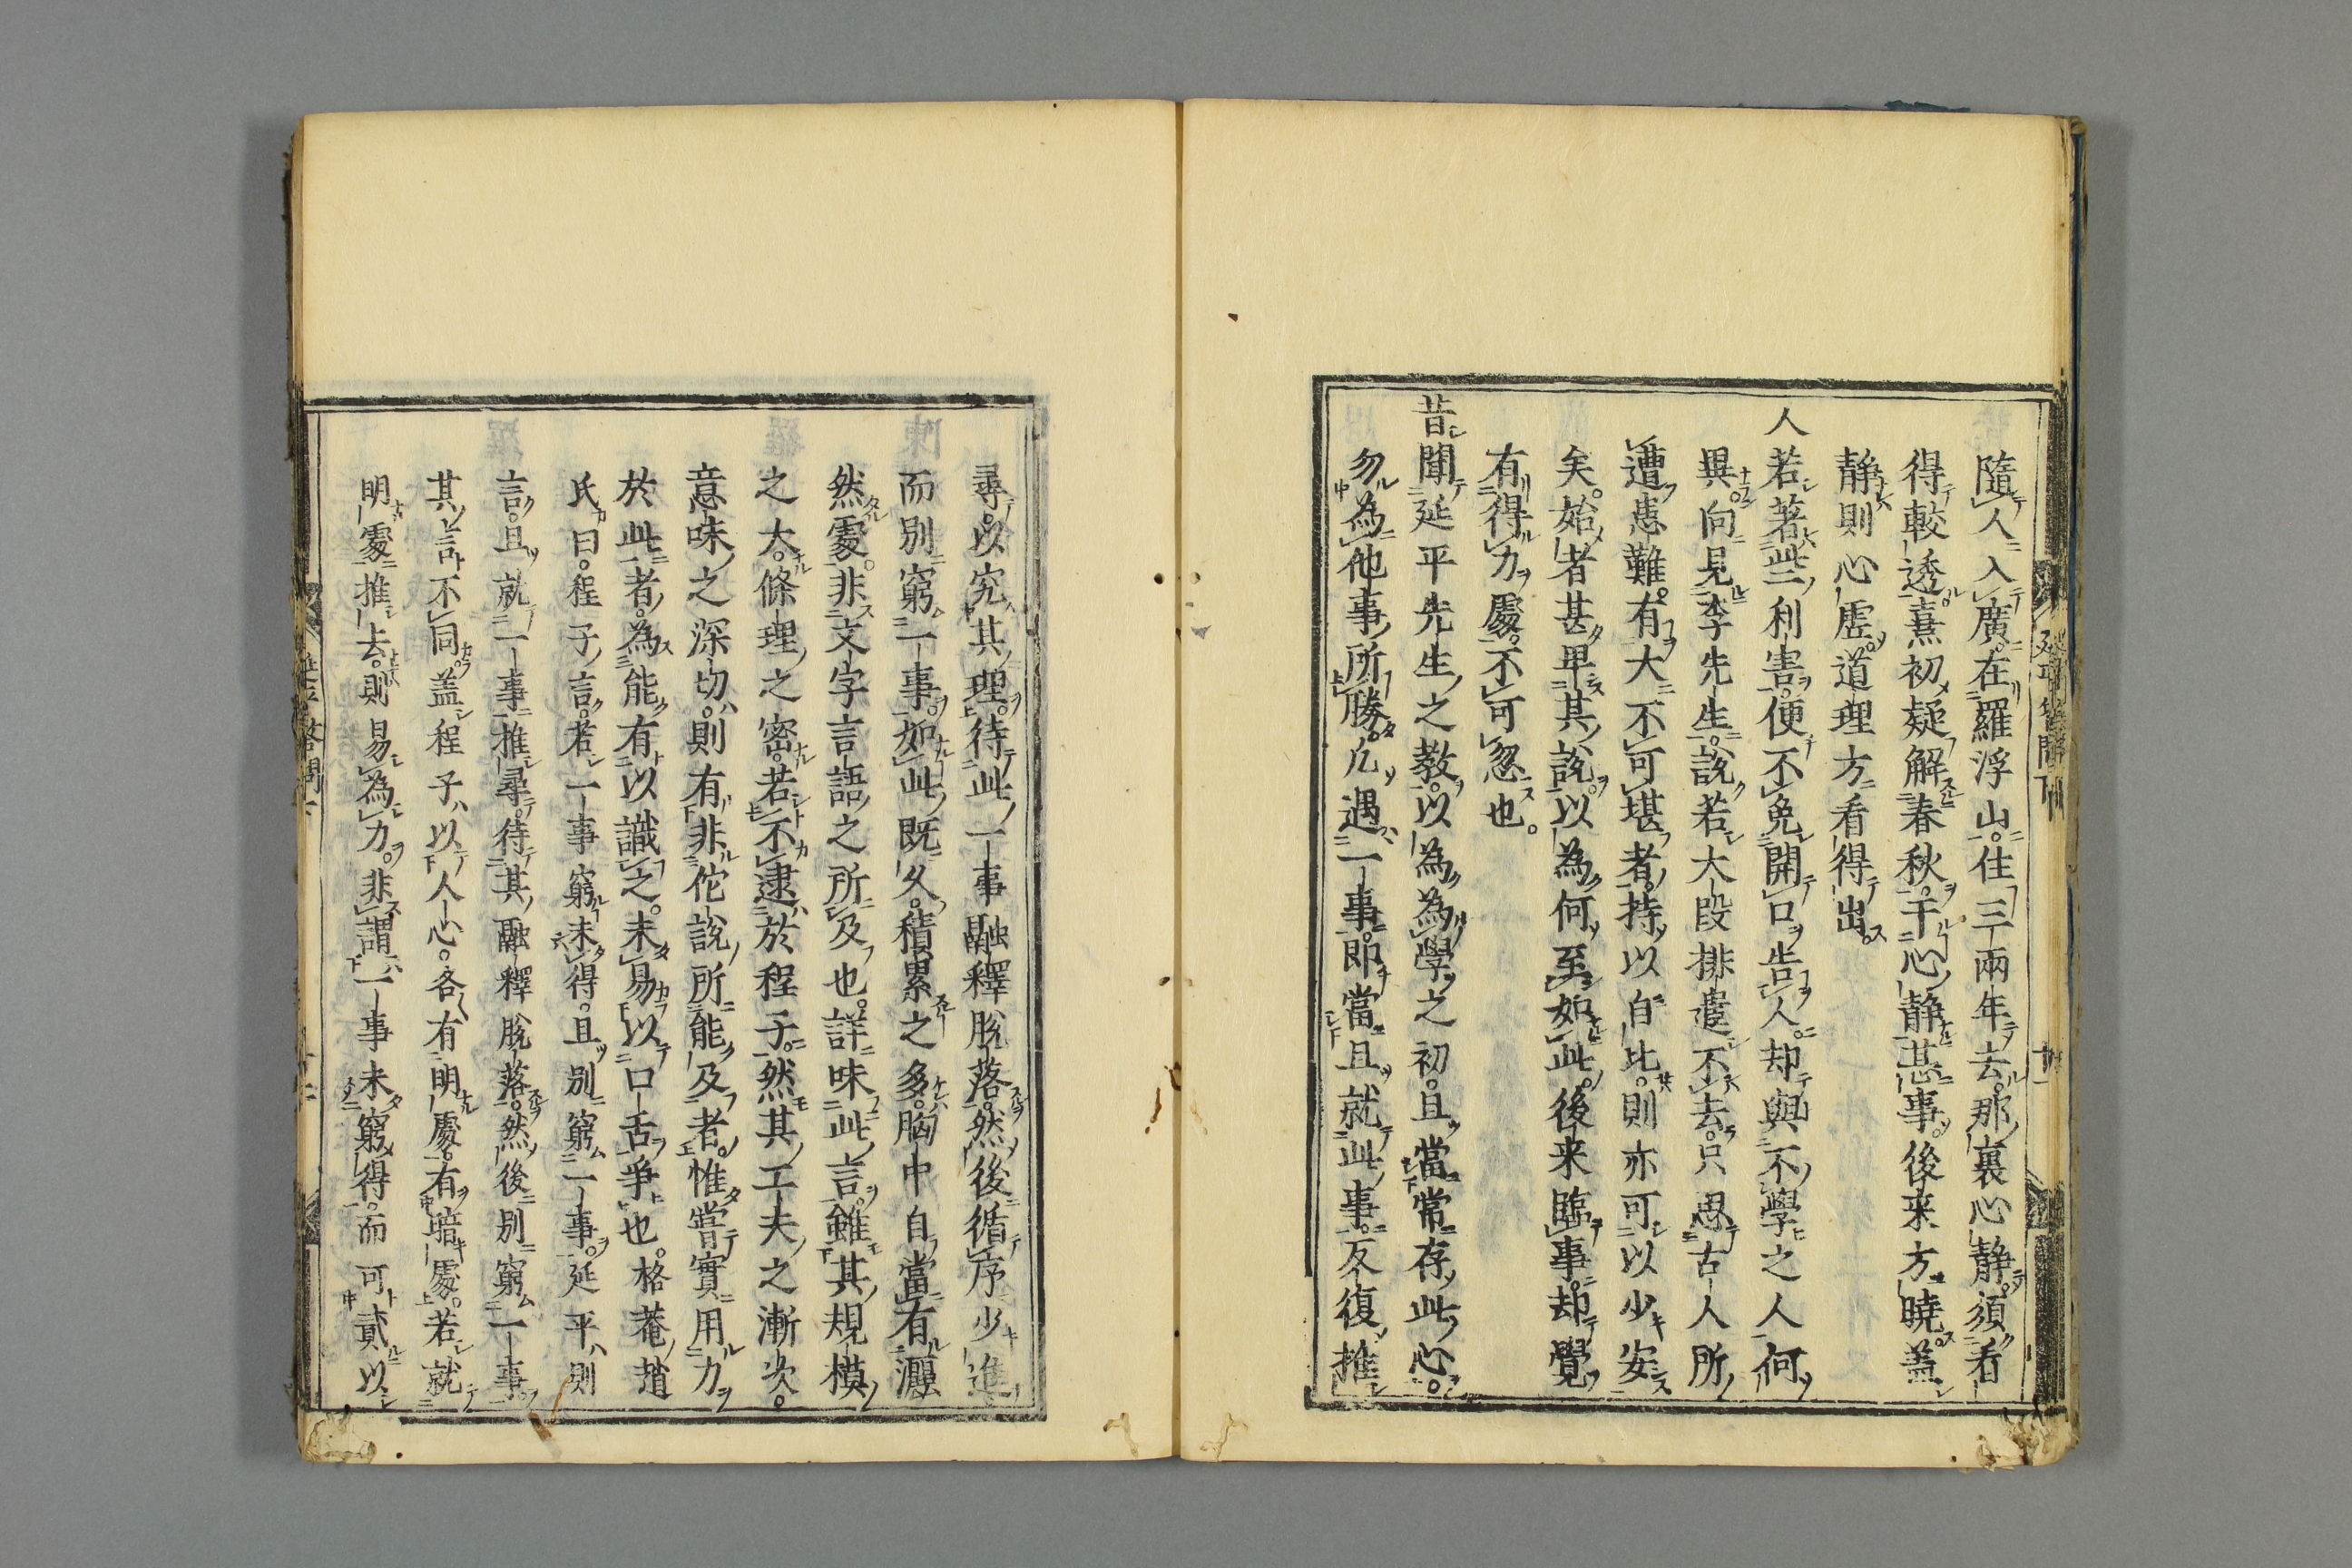 隨人入廣在羅浮山住三兩年去那裏心静須看
得較透熹初疑解春秋干心静甚事後来方曉蓋
静則心虚道理方看得出
人若著些利害便不免開口告人却與不學之人何
異向見李先生說若大段排遣不去只思古人所
遭患難有大不可堪者持以自比則亦可以少安
矣始者甚卑其說以為何至如此後来臨事却覺
有得力處不可忽也
昔聞延平先生之教以為為學之初且當常存此心
勿為他事所勝凢遇一事即當且就此事反復推
尋以究其理待此一事融釋脱落然後循序少進
而別窮一事如此既久積累之多胸中自當有灑
然處非文字言語之所及也詳味此言雖其規模
之大條理之密若不逮於程子然其工夫之漸次
意味之深切則有非佗說所能及者惟嘗實用力
於此者為能有以識之未易以口舌爭也格菴趙
氏曰程子言若一事窮未得且別窮一事延平則
言且就一事推尋待其融釋脱落然後別窮一事
其言不同蓋程子以人心各有明處有暗處若就
明處推去則易為力非謂一事未窮得而可貳以